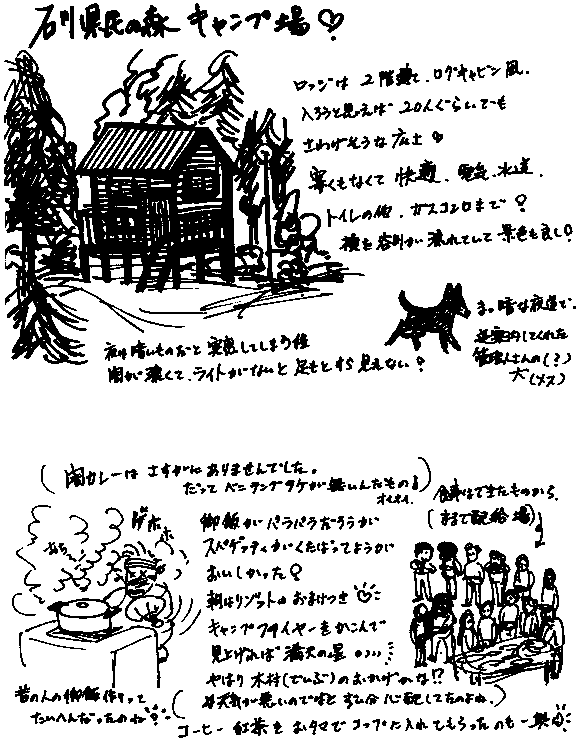 石川県民の森 キャンプ場♡
ロッジは 2階建て、ログキャビン風。
入ろうと思えば 20人ぐらいでも
さわげそうな広さ
寒くもなくて 快適、電気、水道、
トイレの他、ガスコンロまで!
横を谷川が流れていて 景色も良し!
まっ暗な夜道で、
道案内してくれた
管理人さんの(?)
犬(メス)
夜は暗いものだと 実感してしまう程
闇が濃くて、ライトがないと 足もとすら見えない!
(闇カレーは さすがに ありませんでした。
だって ベニテングタケが無いんだもの)
オイオイ
ゲホ
食事はできたものから。
(まるで配給場)
御飯がパラパラだろうが
スパゲッティがくたばってようが
おいしかった!
朝はリゾットのおまけつき♡
キャンプファイヤーをかこんで
見上げれば 満天の星・・・
やはり 木村(でいぶ)のおかげかな!?
(お天気が悪いのですと ずい分 心配してたのよね)
昔の人の御飯作りって
たいへんだったのね
コーヒー 紅茶を おタマで コップに入れてもらったのも 一興